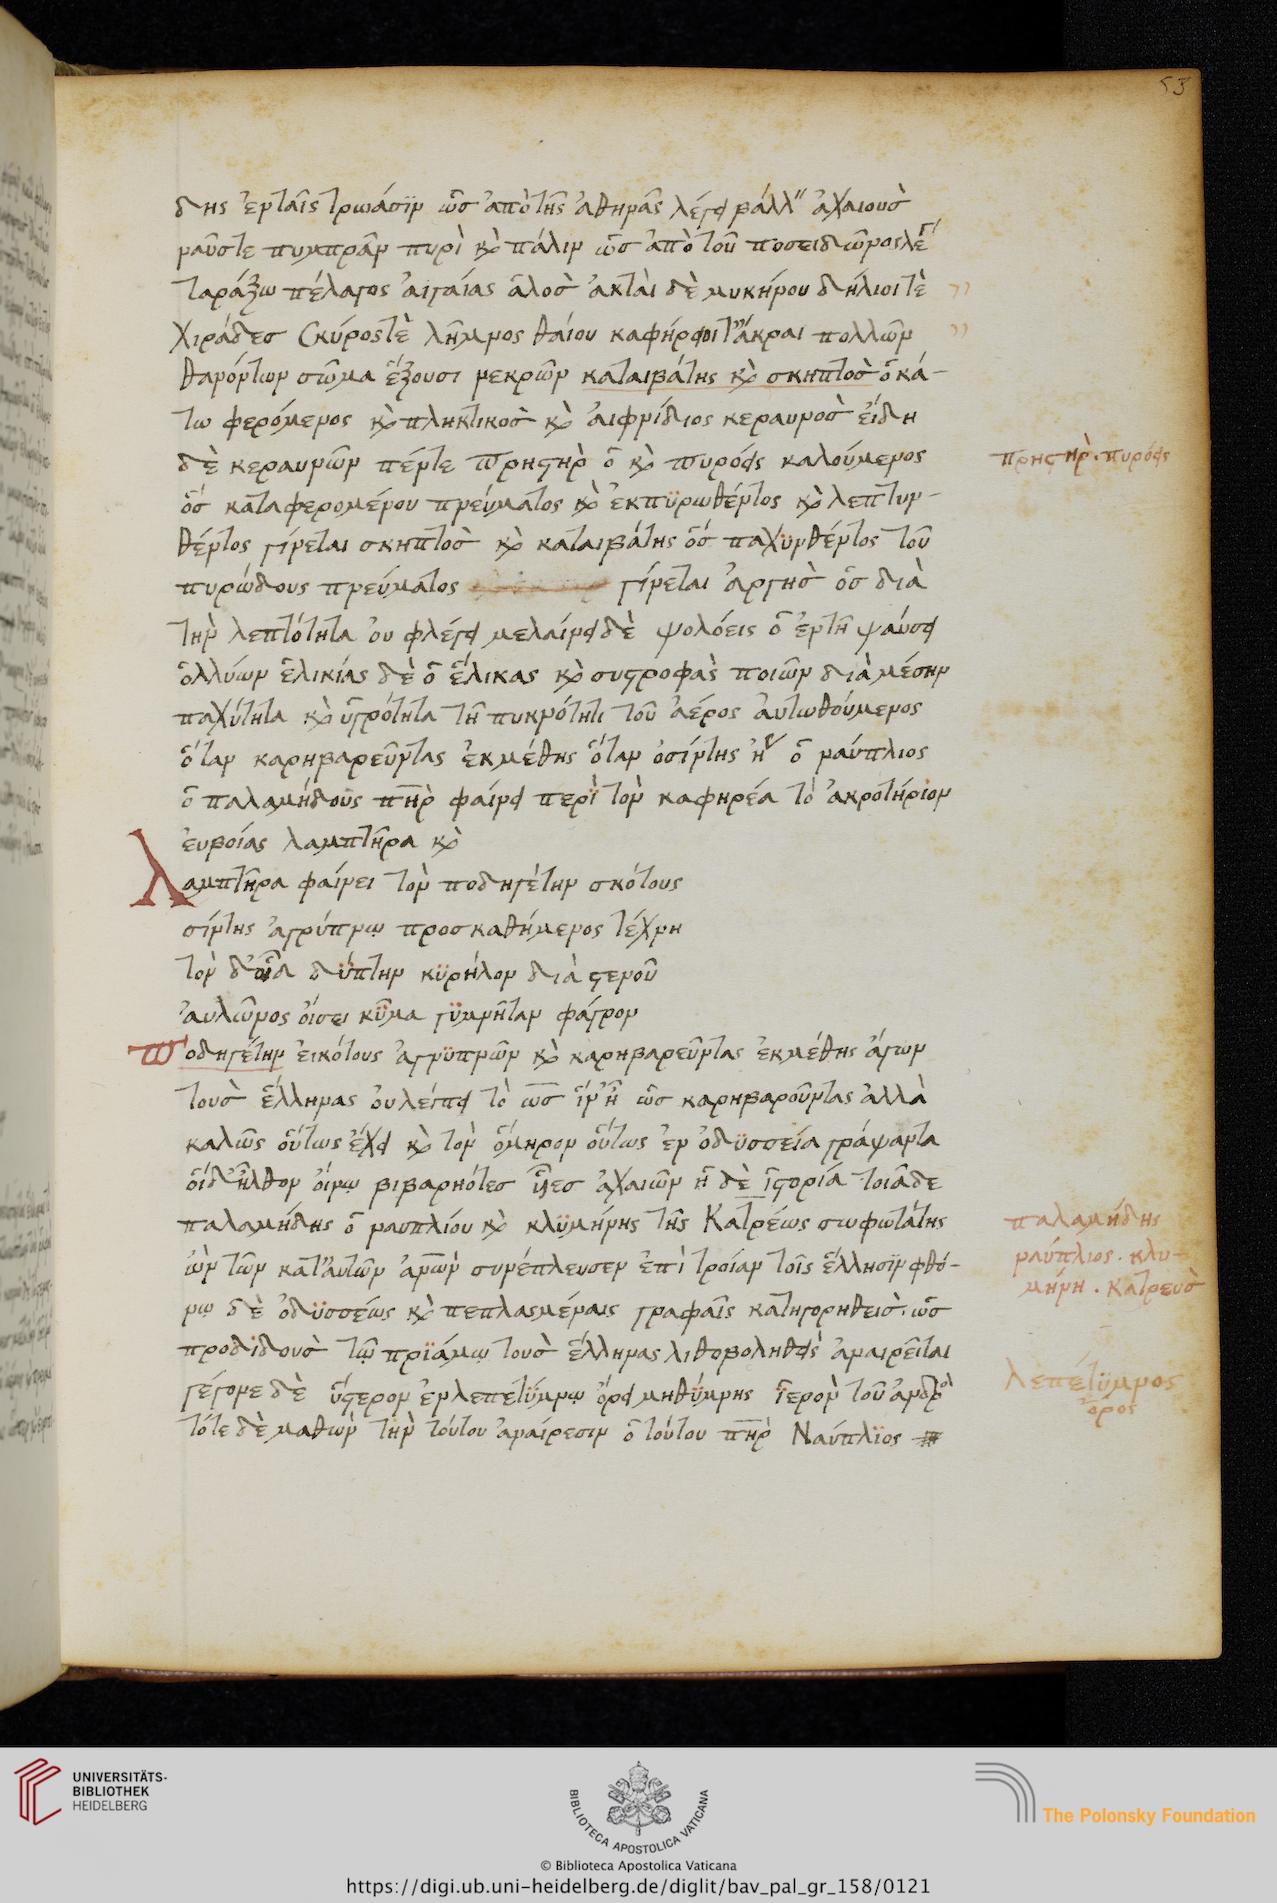 53
δης ἐν ταῖς τρωάσϊν ὡσ ἀπὸ τῆς ἀθηνᾶς λέγει βάλλ ἀχαιοὺσ
ναῦς τε πυμπρᾶν πυρὶ κ̀ πάλιν ὡσ ἀπὸ τοῦ ποσειδῶνος λέ
ταράξω πέλαγος ἀιγαίας ἁλὸσ ἀκτὰι δὲ μυκήνου δήλιοι τὲ
χιράδεσ Σκύρος τὲ λῆμνος θαίου καφήρειοι τ' ἄκραι πολλῶν
θανόντων σῶμα ἕξουσι νεκρῶν καταιβάτης κ̀ σκηπτὸσ ὁ κά-
τω φερόμενος κ̀ πληκτικὸσ κ̀ ἀιφνίδιος κεραυνὸσ ἐίδη
δὲ κεραυνῶν πέντε πρηστὴρ ὁ κ̀ πυρόεις καλούμενος
πρηστὴρ. πυρόεις
ὅσ καταφερομένου πνεύματος κ̀ ἐκπϋρωθέντος κ̀ λεπτυν-
θέντος γίνεται σκηπτὸσ κ̀ καταιβάτης ὅσ παχϋνθέντος τοῦ
πυρώδους πνεύματος γίνεται ἀργὴσ ὅσ διὰ
τὴν λεπτότητα ὀυ φλέγει μελαίνει δὲ ψολόεις ὁ ἐν τῆ ψάυσει
ὀλλύων ἑλικίας δὲ ὁ ἕλικας κ̀ συστροφὰς ποιῶν διὰ μέσην
παχύτητα κ̀ ὑγρότητα τῆ πυκνότητι τοῦ ἀέρος ἀυτωθούμενος
ὅταν καρηβαρεῦντας ἐκ μέθης ὅταν ὁ σίντης ἤ ὁ ναύπλιος
ὁ παλαμήδους πη̅ρ φαίνει περὶ τὸν καφηρέα τὸ ἀκροτήριον
ἐυβοίας λαμπτῆρα κ̀
Λαμπτῆρα φαίνει τὸν ποδηγέτην σκότους
σίντης ἀγρύπνῳ προσκαθήμενος τέχνη
τὸν δ'οἷα δύπτην κϋρήλον διὰ στενοῦ
ἀυλῶνος ὄισει κῦμα γϋμνῆταν φάγρον
Ποδηγέτην ἐικότους ἀγρϋπνῶν κ̀ καρηβαρεῦντας ἐκ μέθης ἄγων
τοὺσ ἕλληνας ὀυ λείπει τὸ ὡσ ἵν' ἦ ὡσ καρηβαροῦντας ἀλλὰ
καλῶς οὕτως ἔχει κ̀ τὸν ὅμηρον οὕτως ἐν ὀδϋσσεία γράψαντα
ὅιδ'ἦλθον ὄινῳ βιβαρηότεσ υἷεσ ἀχαιῶν ἡ δὲ ἱστορία τοιάδε
παλαμήδης ὁ ναυπλίου κ̀ κλϋμήνης τῆς Κατρέως σωφωτάτης
παλαμήδης
ὢν τῶν κατ'ἀυτῶν ἀνω̅ν συνέπλευσεν ἐπὶ τροίαν τοῖς ἕλλησϊν φθό-
ναύπλιος. κλυ-
μήνη. Κατρεὺσ
νῳ δὲ ὀδϋσσέως κ̀ πεπλασμέναις γραφαῖς κατηγορηθεισ. ὡσ
προδϊδοὺσ τῷ πρϊάμῳ τοὺσ ἕλληνας λιθοβοληθεὶς ἀναιρεῖται
γέγονε δὲ ὕστερον ἐν λεπετύμνῳ ὄρει μηθύμνης ἱερὸν τοῦ ἀνδρὸ
Λεπέτϋμνος
ὄρος
τότε δὲ μαθὼν τὴν τούτου ἀναίρεσιν ὁ τούτου πη̅ρ Ναύπλϊος
UNIVERSITÄTS-
BIBLIOTHEK
HEIDELBERG
BIBLIOTECA APOSTOLICA VATICANA
The Polonsky Foundation
© Biblioteca Apostolica Vaticana
https://digi.ub.uni-heidelberg.de/diglit/bav_pal_gr_158/0121